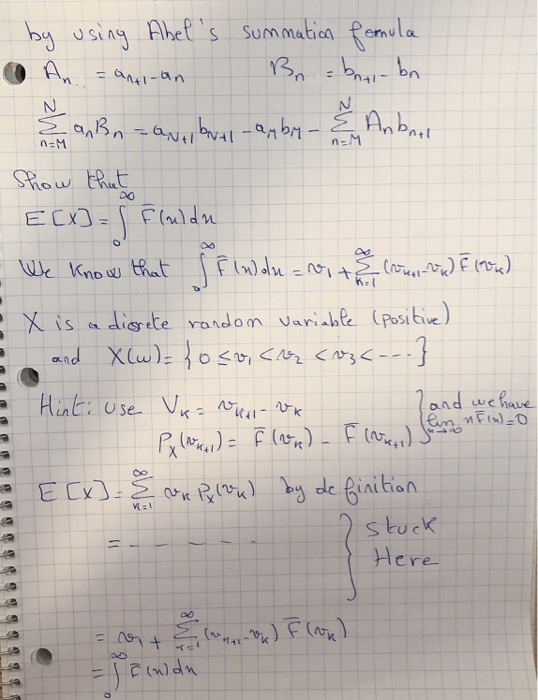 by using Abel's summation femula
A_n = a_{n+1} - a_n    B_n = b_{n+1} - b_n
∑_{n=M}^{N} a_n B_n = a_{N+1} b_{N+1} - a_M b_M - ∑_{n=M}^{N} A_n b_{n+1}
Show that
E[X] = ∫_0^∞ F̄(x)dx
We know that ∫_0^∞ F̄(x)dx = v_1 + ∑_{k=1}^{∞} (v_{k+1} - v_k) F̄(v_k)
X is a discrete random variable (positive)
and X(ω) = {0 ≤ v_1 < v_2 < v_3 < --- }
Hint: use V_k = v_{k+1} - v_k
P_X(v_{k+1}) = F̄(v_k) - F̄(v_{k+1})
} and we have
lim_{n→∞} n F̄(n) = 0
E[X] = ∑_{k=1}^{∞} v_k P_X(v_k) by definition
= - - - - - -
} stuck
Here
= v_1 + ∑_{k=1}^{∞} (v_{k+1} - v_k) F̄(v_k)
= ∫_0^∞ F̄(x)dx